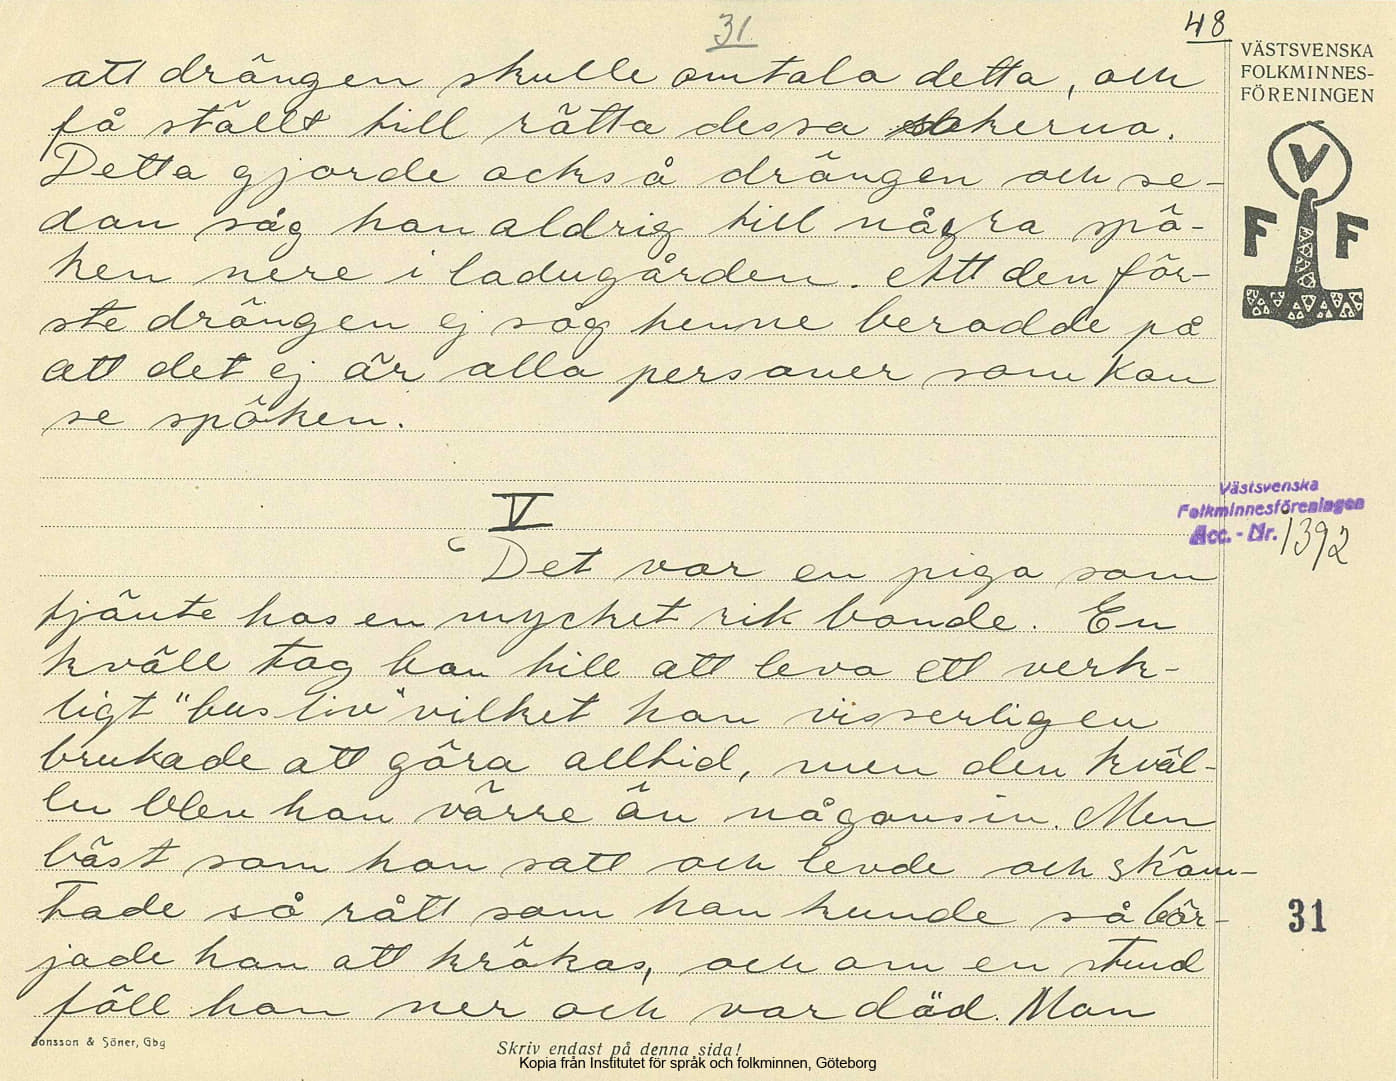 31
48
VÄSTSVENSKA
FOLKMINNES-
FÖRENINGEN
V
F F
att drängen skulle omtala detta, och
få ställt till rätta dessa sakerna.
Detta gjorde också drängen och se-
dan såg han aldrig till några spö-
ken nere i ladugården. Att den för-
ste drängen ej såg henne berodde på
att det ej är alla personer som kan
se spöken.
V
Västsvenska
Folkminnesföreningen
Acc. - Nr. 1392
"Det var en piga som
tjänte hos en mycket rik bonde. En
kväll tog han till att leva ett verk-
ligt "busliv" vilket han visserligen
brukade att göra alltid, men den kväl-
len blev han värre än någonsin. Men
bäst som han satt och levde och skäm-
tade så rått som han kunde så bör-
jade han att kräkas, och om en stund
föll han ner och var död. Man
31
Jonsson & Söner, Gbg
Skriv endast på denna sida!
Kopia från Institutet för språk och folkminnen, Göteborg